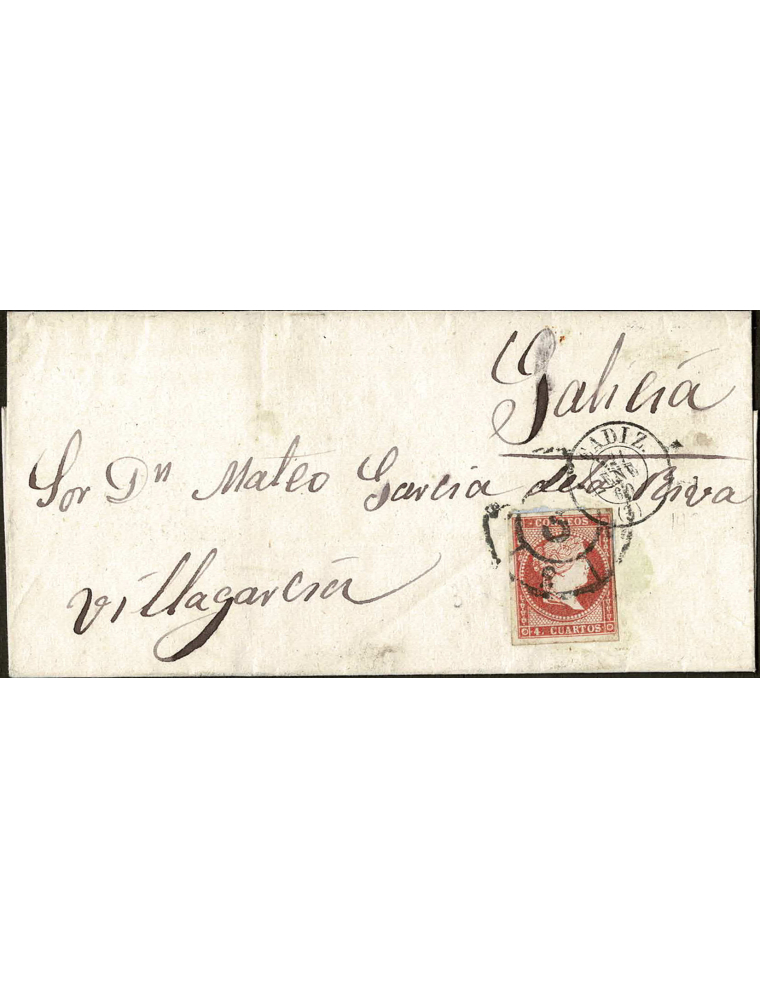 Galicia
Sor Dn Mateo Garcia de la Riva
Villagarcia
CADIZ
ENE
60
(3)
CORREOS
4. CUARTOS.